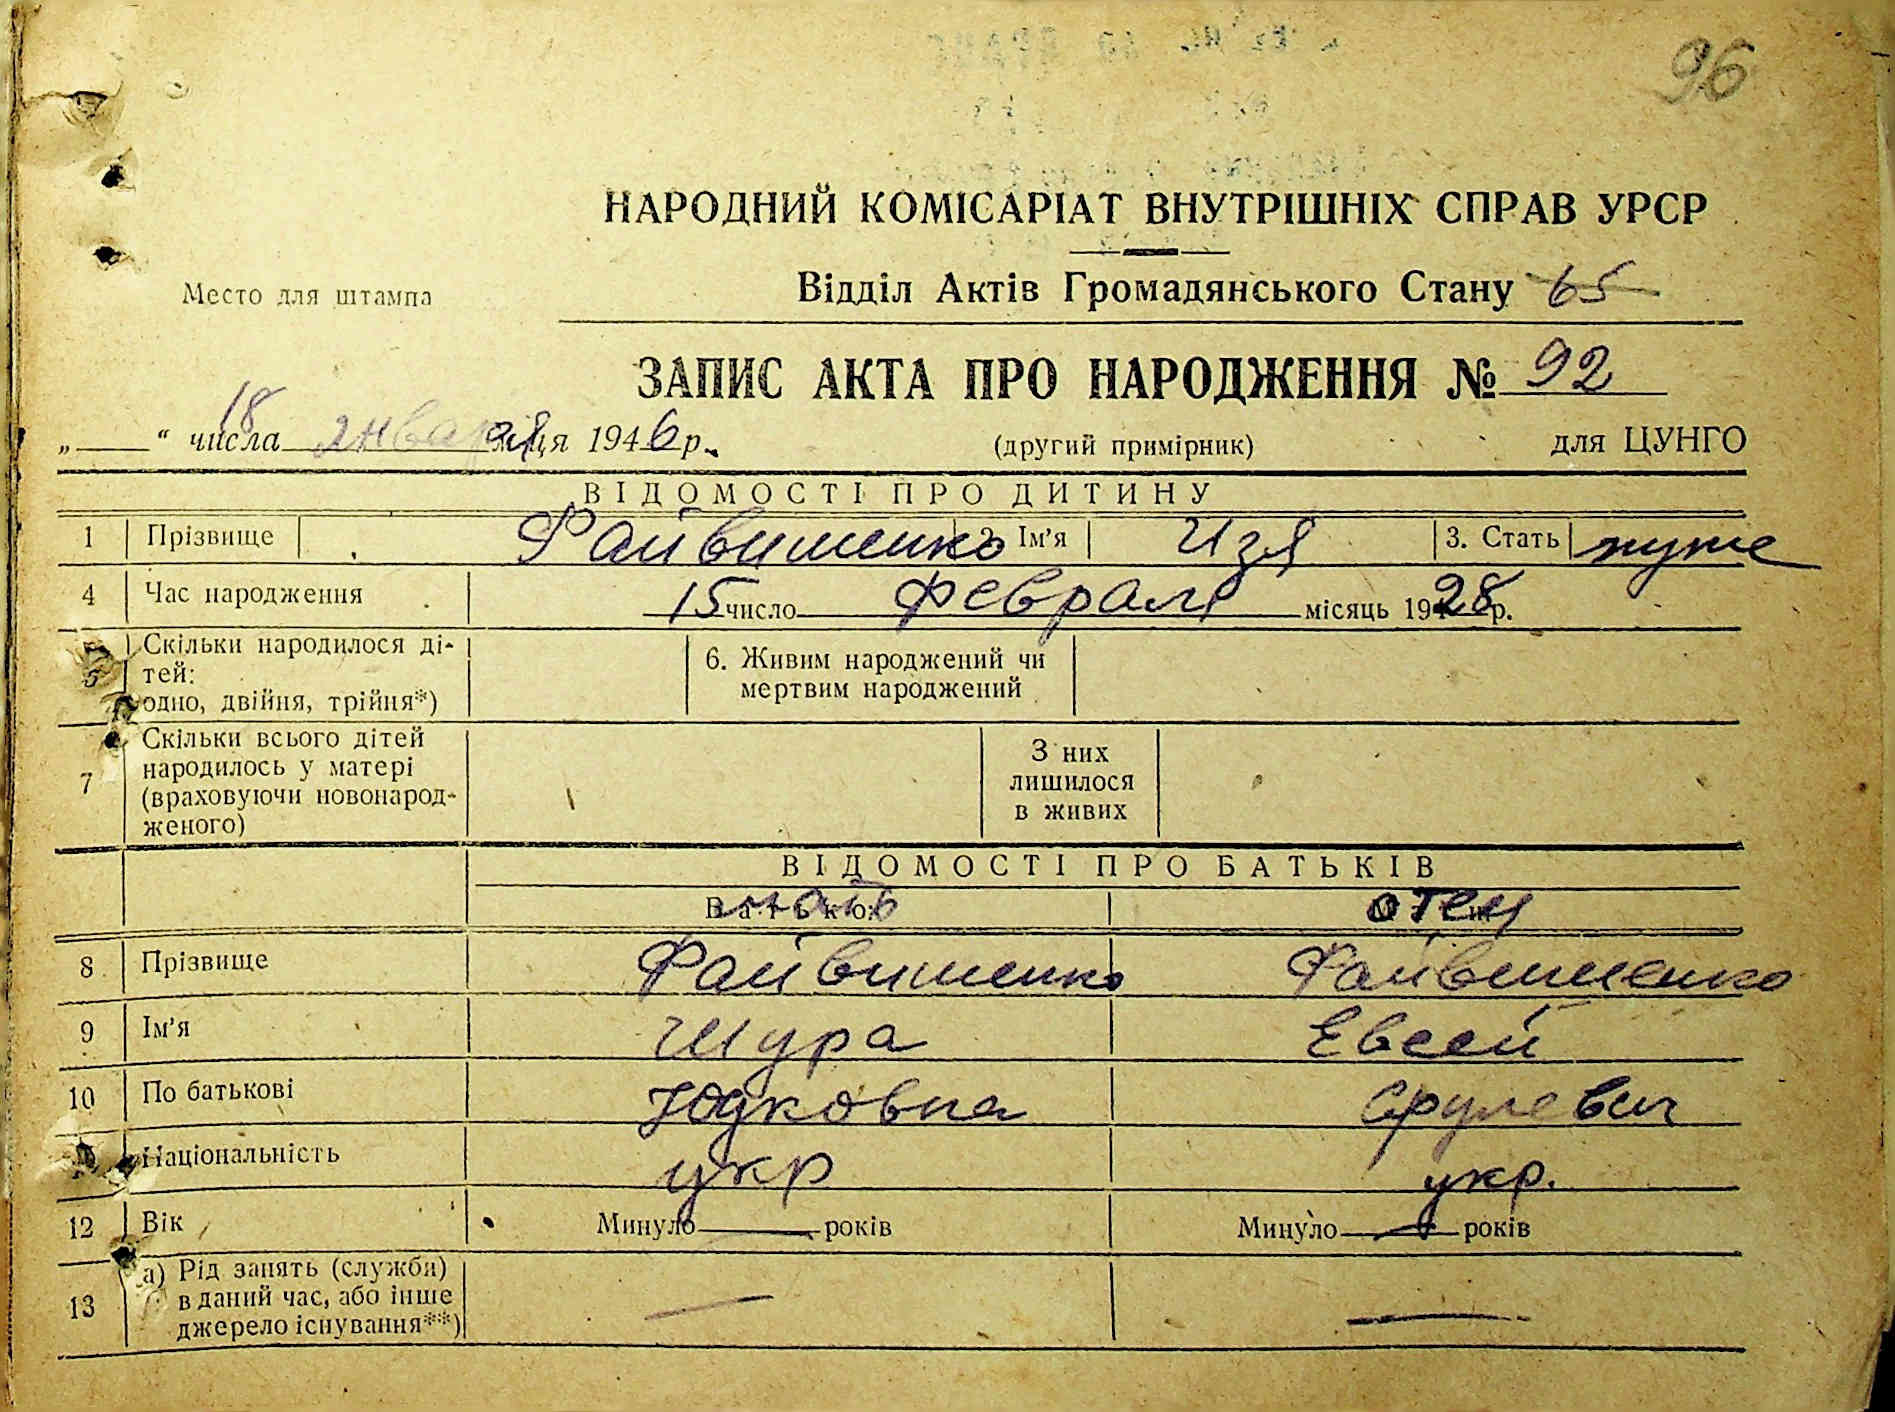 96
НАРОДНИЙ КОМІСАРІАТ ВНУТРІШНІХ СПРАВ УРСР
Место для штампа
Відділ Актів Громадянського Стану 65
ЗАПИС АКТА ПРО НАРОДЖЕННЯ № 92
„ “ 18 числа января місяця 1946 р.
(другий примірник) для ЦУНГО
ВІДОМОСТІ ПРО ДИТИНУ
1 Прізвище Файвишенко 2. Ім'я Изя 3. Стать муже
4 Час народження 15 число февраля місяць 1928 р.
5 Скільки народилося ді-
тей:
одно, двійня, трійня*)
6. Живим народжений чи
мертвим народжений
7 Скільки всього дітей
народилось у матері
(враховуючи новонарод-
женого)
З них
лишилося
в живих
ВІДОМОСТІ ПРО БАТЬКІВ
Батько: мать отец
8 Прізвище Файвишенко Файвишенко
9 Ім'я Шура Евсей
10 По батькові Юдковна Срулевич
Національність укр укр.
12 Вік Минуло років Минуло років
13 а) Рід занять (служби)
в даний час, або інше
джерело існування**)